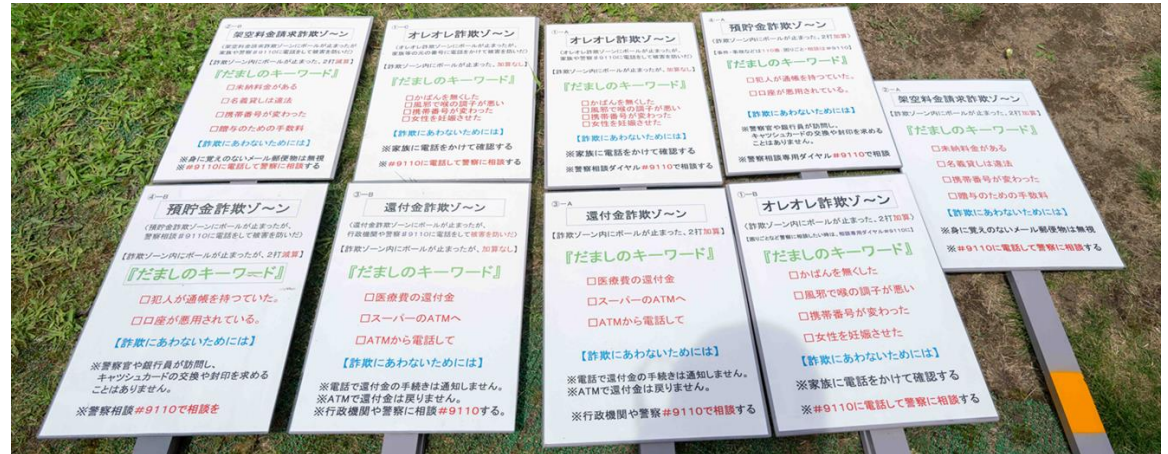 ②ーB
架空料金請求詐欺ゾ〜ン
(架空料金請求詐欺ゾーンにボールが止まったが
家族や警察#9110に電話をかけて被害を防いだ)
【詐欺ゾーン内にボールが止まった、2打減算】
『だましのキーワード』
□未納料金がある
□名義貸しは違法
□携帯番号が変わった
□贈与のための手数料
【詐欺にあわないためには】
※身に覚えのないメール郵便物は無視
※#9110に電話して警察に相談する
①ーC
オレオレ詐欺ゾ〜ン
(オレオレ詐欺ゾーンにボールが止まったが、
家族等の元の番号に電話をかけて被害を防いだ)
【詐欺ゾーン内にボールが止まった、加算なし】
『だましのキーワード』
□かばんを無くした
□風邪で喉の調子が悪い
□携帯番号が変わった
□女性を妊娠させた
【詐欺にあわないためには】
※家族に電話をかけて確認する
※#9110に電話して警察に相談する
①ーA
オレオレ詐欺ゾ〜ン
(オレオレ詐欺ゾーンにボールが止まったが、
家族や警察#9110に電話をかけて被害を防いだ)
【詐欺ゾーン内にボールが止まったが、加算なし】
『だましのキーワード』
□かばんを無くした
□風邪で喉の調子が悪い
□携帯番号が変わった
□女性を妊娠させた
【詐欺にあわないためには】
※家族に電話をかけて確認する
※警察相談ダイヤル#9110で相談する
④ーA
預貯金詐欺ゾ〜ン
(詐欺ゾーン内にボールが止まった、2打加算)
『だましのキーワード』
□犯人が通帳を持つていた。
□口座が悪用されている。
【詐欺にあわないためには】
※警察官や銀行員が訪問し、
キャツシュカードの交換や封印を求める
ことはありません。
※警察相談専用ダイヤル#9110で相談
②ーA
架空料金請求詐欺ゾ〜ン
【詐欺ゾーン内にボールが止まった、2打加算】
『だましのキーワード』
□未納料金がある
□名義貸しは違法
□携帯番号が変わった
□贈与のための手数料
【詐欺にあわないためには】
※身に覚えのないメール郵便物は無視
※#9110に電話して警察に相談する
④ーB
預貯金詐欺ゾ〜ン
(預貯金詐欺ゾーンにボールが止まったが、
警察相談#9110に電話をして被害を防いだ)
【詐欺ゾーン内にボールが止まったが、2打減算】
『だましのキーワード』
□犯人が通帳を持つていた。
□口座が悪用されている。
【詐欺にあわないためには】
※警察官や銀行員が訪問し、
キャツシュカードの交換や封印を求める
ことはありません。
※警察相談#9110で相談を
③ーB
還付金詐欺ゾ〜ン
(還付金詐欺ゾーンにボールが止まったが、
行政機関や警察#9110に電話をして被害を防いだ)
【詐欺ゾーン内にボールが止まったが、加算なし】
『だましのキーワード』
□医療費の還付金
□スーパーのATMへ
□ATMから電話して
【詐欺にあわないためには】
※電話で還付金の手続きは通知しません。
※ATMで還付金は戻りません。
※行政機関や警察に相談#9110する。
③ーA
還付金詐欺ゾ〜ン
【詐欺ゾーン内にボールが止まった、2打加算】
『だましのキーワード』
□医療費の還付金
□スーパーのATMへ
□ATMから電話して
【詐欺にあわないためには】
※電話で還付金の手続きは通知しません。
※ATMで還付金は戻りません。
※行政機関や警察#9110で相談する
①ーB
オレオレ詐欺ゾ〜ン
【詐欺ゾーン内にボールが止まった、2打加算】
【困りごとなど警察に相談したい時は、相談専用ダイヤル#9110に】
『だましのキーワード』
□かばんを無くした
□風邪で喉の調子が悪い
□携帯番号が変わった
□女性を妊娠させた
【詐欺にあわないためには】
※家族に電話をかけて確認する
※#9110に電話して警察に相談する